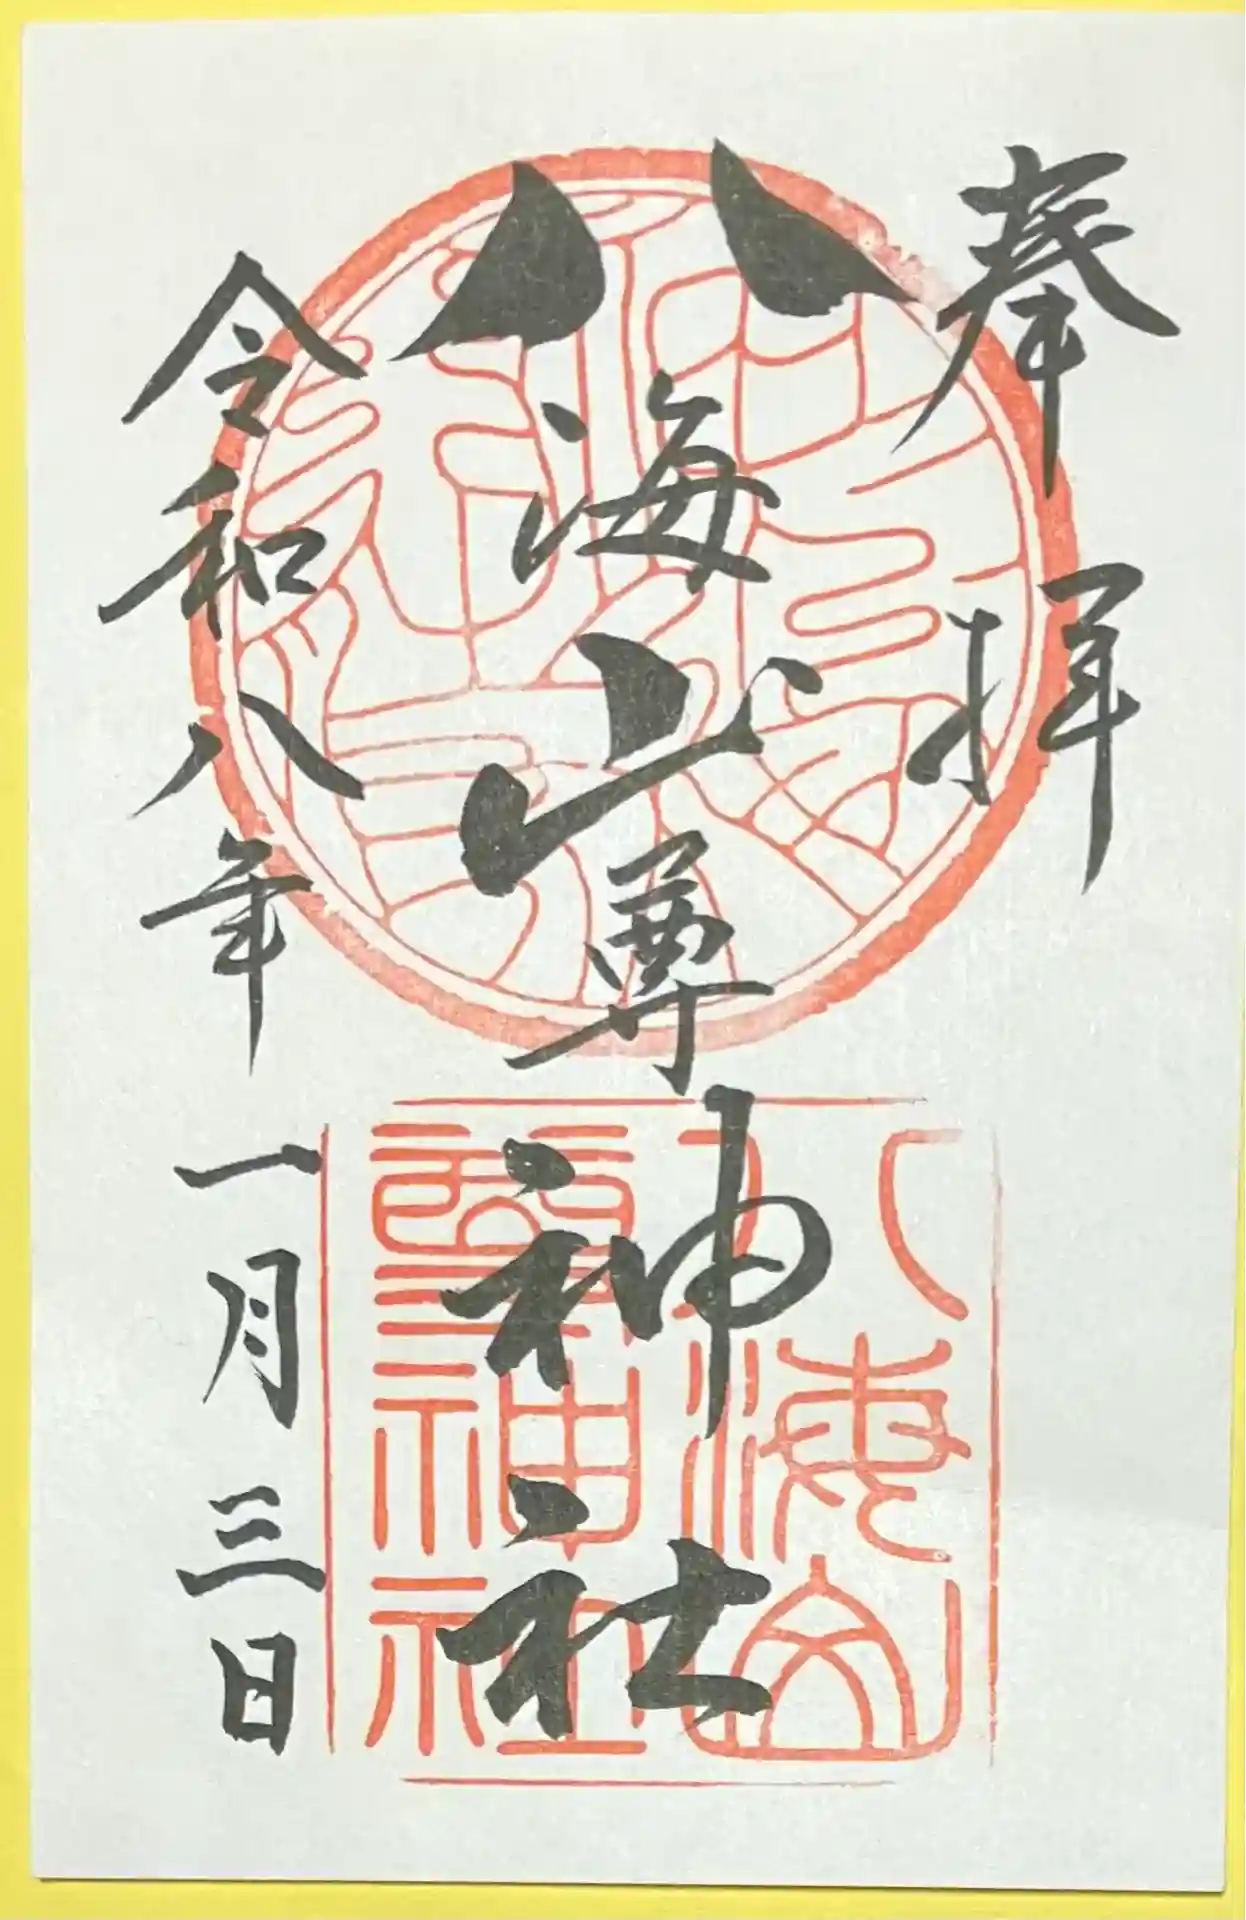 奉拝
八海山尊神社
令和八年一月三日
八海山
尊神社